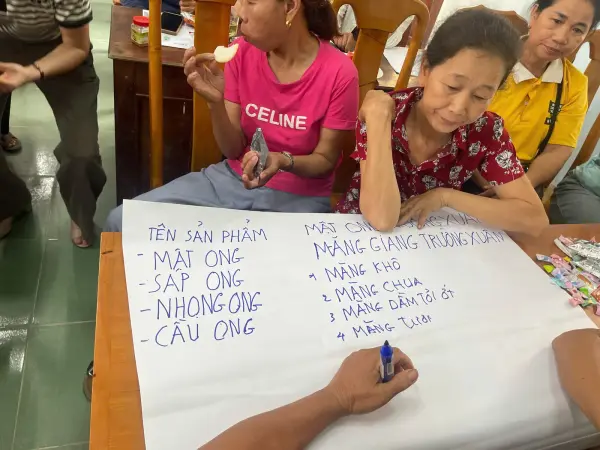 CELINE
TÊN SẢN PHẨM
- MẬT ONG
- SÁP ONG
- NHỘNG ONG
- CẦU ONG
MẬT ONG
MĂNG GIANG TRƯỜNG XUÂN
1 MĂNG KHÔ
2 MĂNG CHUA
3 MĂNG DẦM TỎI ỚT
4 MĂNG TƯƠI